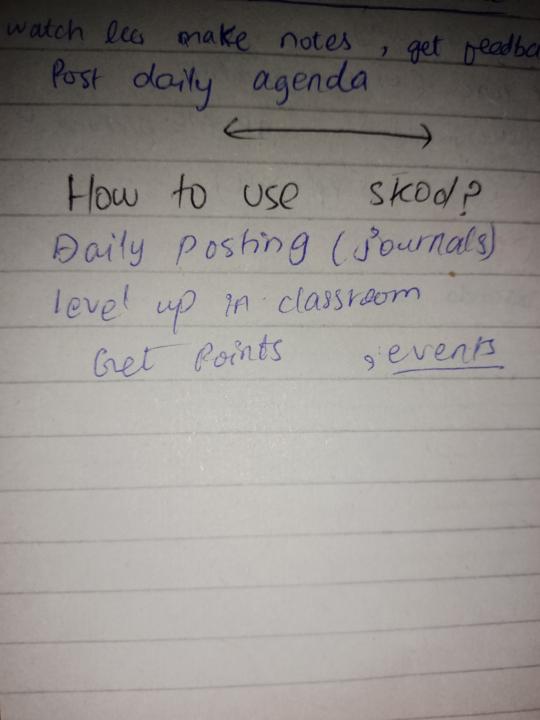 watch lecs make notes , get feedba
Post daily agenda
How to use skool?
Daily posting (journals)
level up in classroom
Get points , events